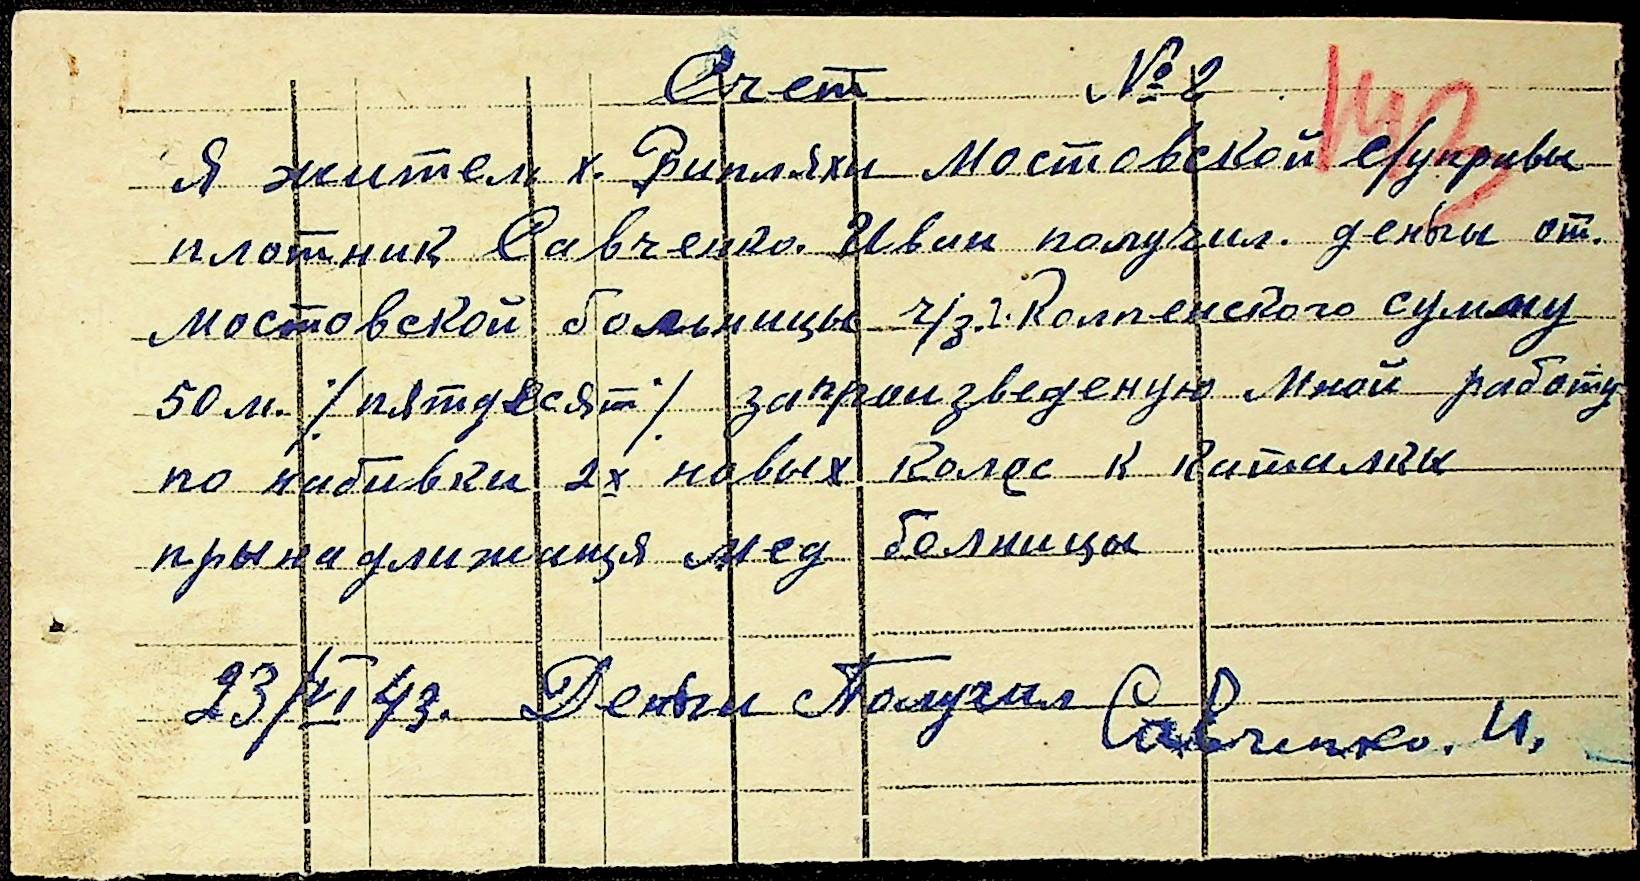 Счет № 2
142
Я жител х. Рипляхи Мостовской с/управы
плотник Савченко. Иван получил. деньги от.
Мостовской больницы ч/з. г. Колпенского сумму
50 м. ·/ пятдесят ·/. запроизведеную Мной работу
по набивки 2х новых колес к каталкы
прынадлижащя мед болницы
23/VI 43. Деньги Получил Савченко. И,